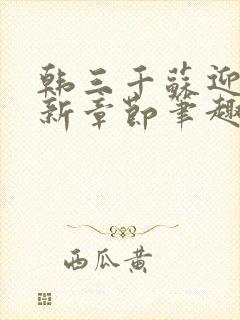 韩三千苏迎
新章节笔趣
西瓜黄